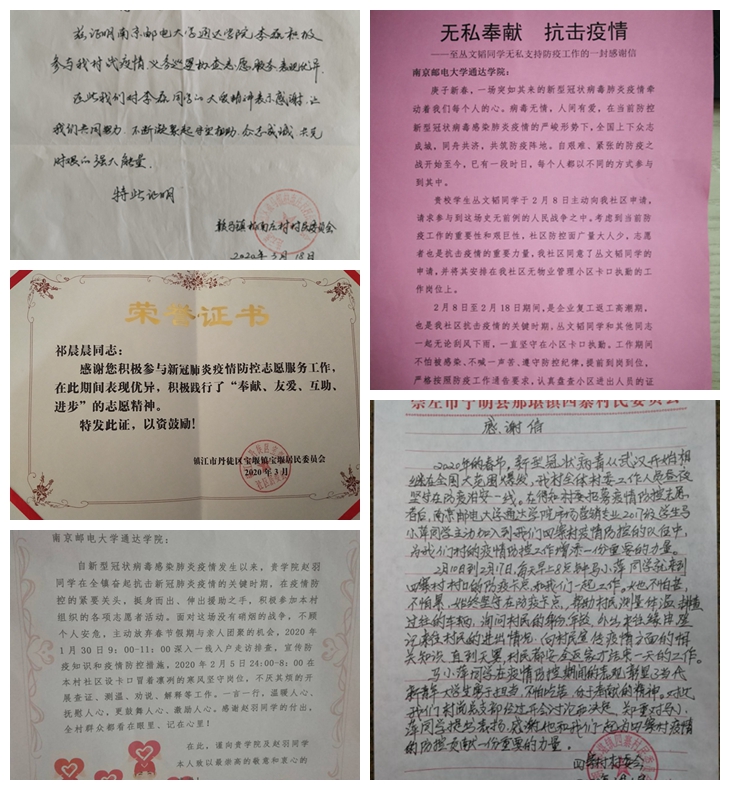 兹证明南京邮电大学通达学院李磊积极
参与我村
在此我们对李磊同学的
特此证明
村村民委员会
2020年3月18日
荣誉证书
祁晨晨同志：
感谢您积极参与新冠肺炎疫情防控志愿服务工作，
在此期间表现优异，积极践行了“奉献、友爱、互助、
进步”的志愿精神。
特发此证，以资鼓励！
镇江市丹徒区宝堰镇宝堰居民委员会
2020年3月
南京邮电大学通达学院：
自新型冠状病毒感染肺炎疫情发生以来，贵学院赵羽
同学在全镇奋起抗击新冠肺炎疫情的关键时期，在疫情防
控的紧要关头，挺身而出、伸出援助之手，积极参加本村
组织的各项志愿者活动。面对这场没有硝烟的战争，不顾
个人安危，主动放弃春节假期与亲人团聚的机会，2020年
1月30日9：00-11：00深入一线入户走访排查，宣传防
疫知识和疫情防控措施。2020年2月5日24:00-8：00在
本村社区设卡口冒着凛冽的寒风坚守岗位，不厌其烦的开
展查证、测温、劝说、解释等工作。一言一行，温暖人心、
抚慰人心，更鼓舞人心、激励人心。感谢赵羽同学的付出，
全村群众都看在眼里、记在心里！
在此，谨向贵学院及赵羽同学
本人致以最崇高的敬意和衷心的
无私奉献 抗击疫情
——至丛文韬同学无私支持防疫工作的一封感谢信
南京邮电大学通达学院：
庚子新春，一场突如其来的新型冠状病毒肺炎疫情牵
动着我们每个人的心。病毒无情，人间有爱，在当前防控
新型冠状病毒感染肺炎疫情的严峻形势下，全国上下众志
成城，同舟共济，共筑防疫阵地。自艰难、紧张的防疫之
战开始至今，已有一段时日，每个人都以不同的方式参与
到其中。
贵校学生丛文韬同学于2月8日主动向我社区申请，
请求参与到这场史无前例的人民战争之中。考虑到当前防
疫工作的重要性和艰巨性，社区防控面广量大人少，志愿
者也是抗击疫情的重要力量，我社区同意了丛文韬同学的
申请，并将其安排在我社区无物业管理小区卡口执勤的工
作岗位上。
2月8日至2月18日期间，是企业复工返工高潮期，
也是我社区抗击疫情的关键时期，丛文韬同学和其他同志
一起无论刮风下雨，一直坚守在小区卡口执勤。工作期间
不怕被感染、不喊一声苦、遵守防控纪律，提前到岗到位，
严格按照防疫工作通告要求，认真盘查小区进出人员的证
崇左市宁明县那堪镇四寨村民委员会
感谢信
2020年的春节，新型冠状病毒从武汉开始相
继在全国大范围爆发，我村全体村委工作人员昼夜
坚守在防疫治安一线。在得知村委招募疫情防控志愿
者后，南京邮电大学通达学院市场营销专业2017级学生马
小萍同学主动加入到我们四寨村疫情防控的队伍中，
为我们村的疫情防控工作增添一份重要的力量。
2月10日到2月17日，每天早上8点钟马小萍同学就来到
四寨村村口的防疫卡点，和我们一起工作。她也不怕苦，
不怕累，始终坚守在防疫卡点，帮助村民测量体温，排查
过往的车辆，询问村民的
记来往村民的进出情况，向村民宣传疫情方面的相
关知识，直到天黑，村民都安全返家才结束一天的工作。
马小萍同学在疫情防控期间的表现，彰显了当代
新青年大学生勇于担当、不怕吃苦、甘于奉献的精神。对此
我们村两委支部经过开会讨论而决定，郑重对马小
萍同学提出表扬，感谢她和我们一起为四寨村疫情
的防控贡献一份重要的力量。
四寨村村委会